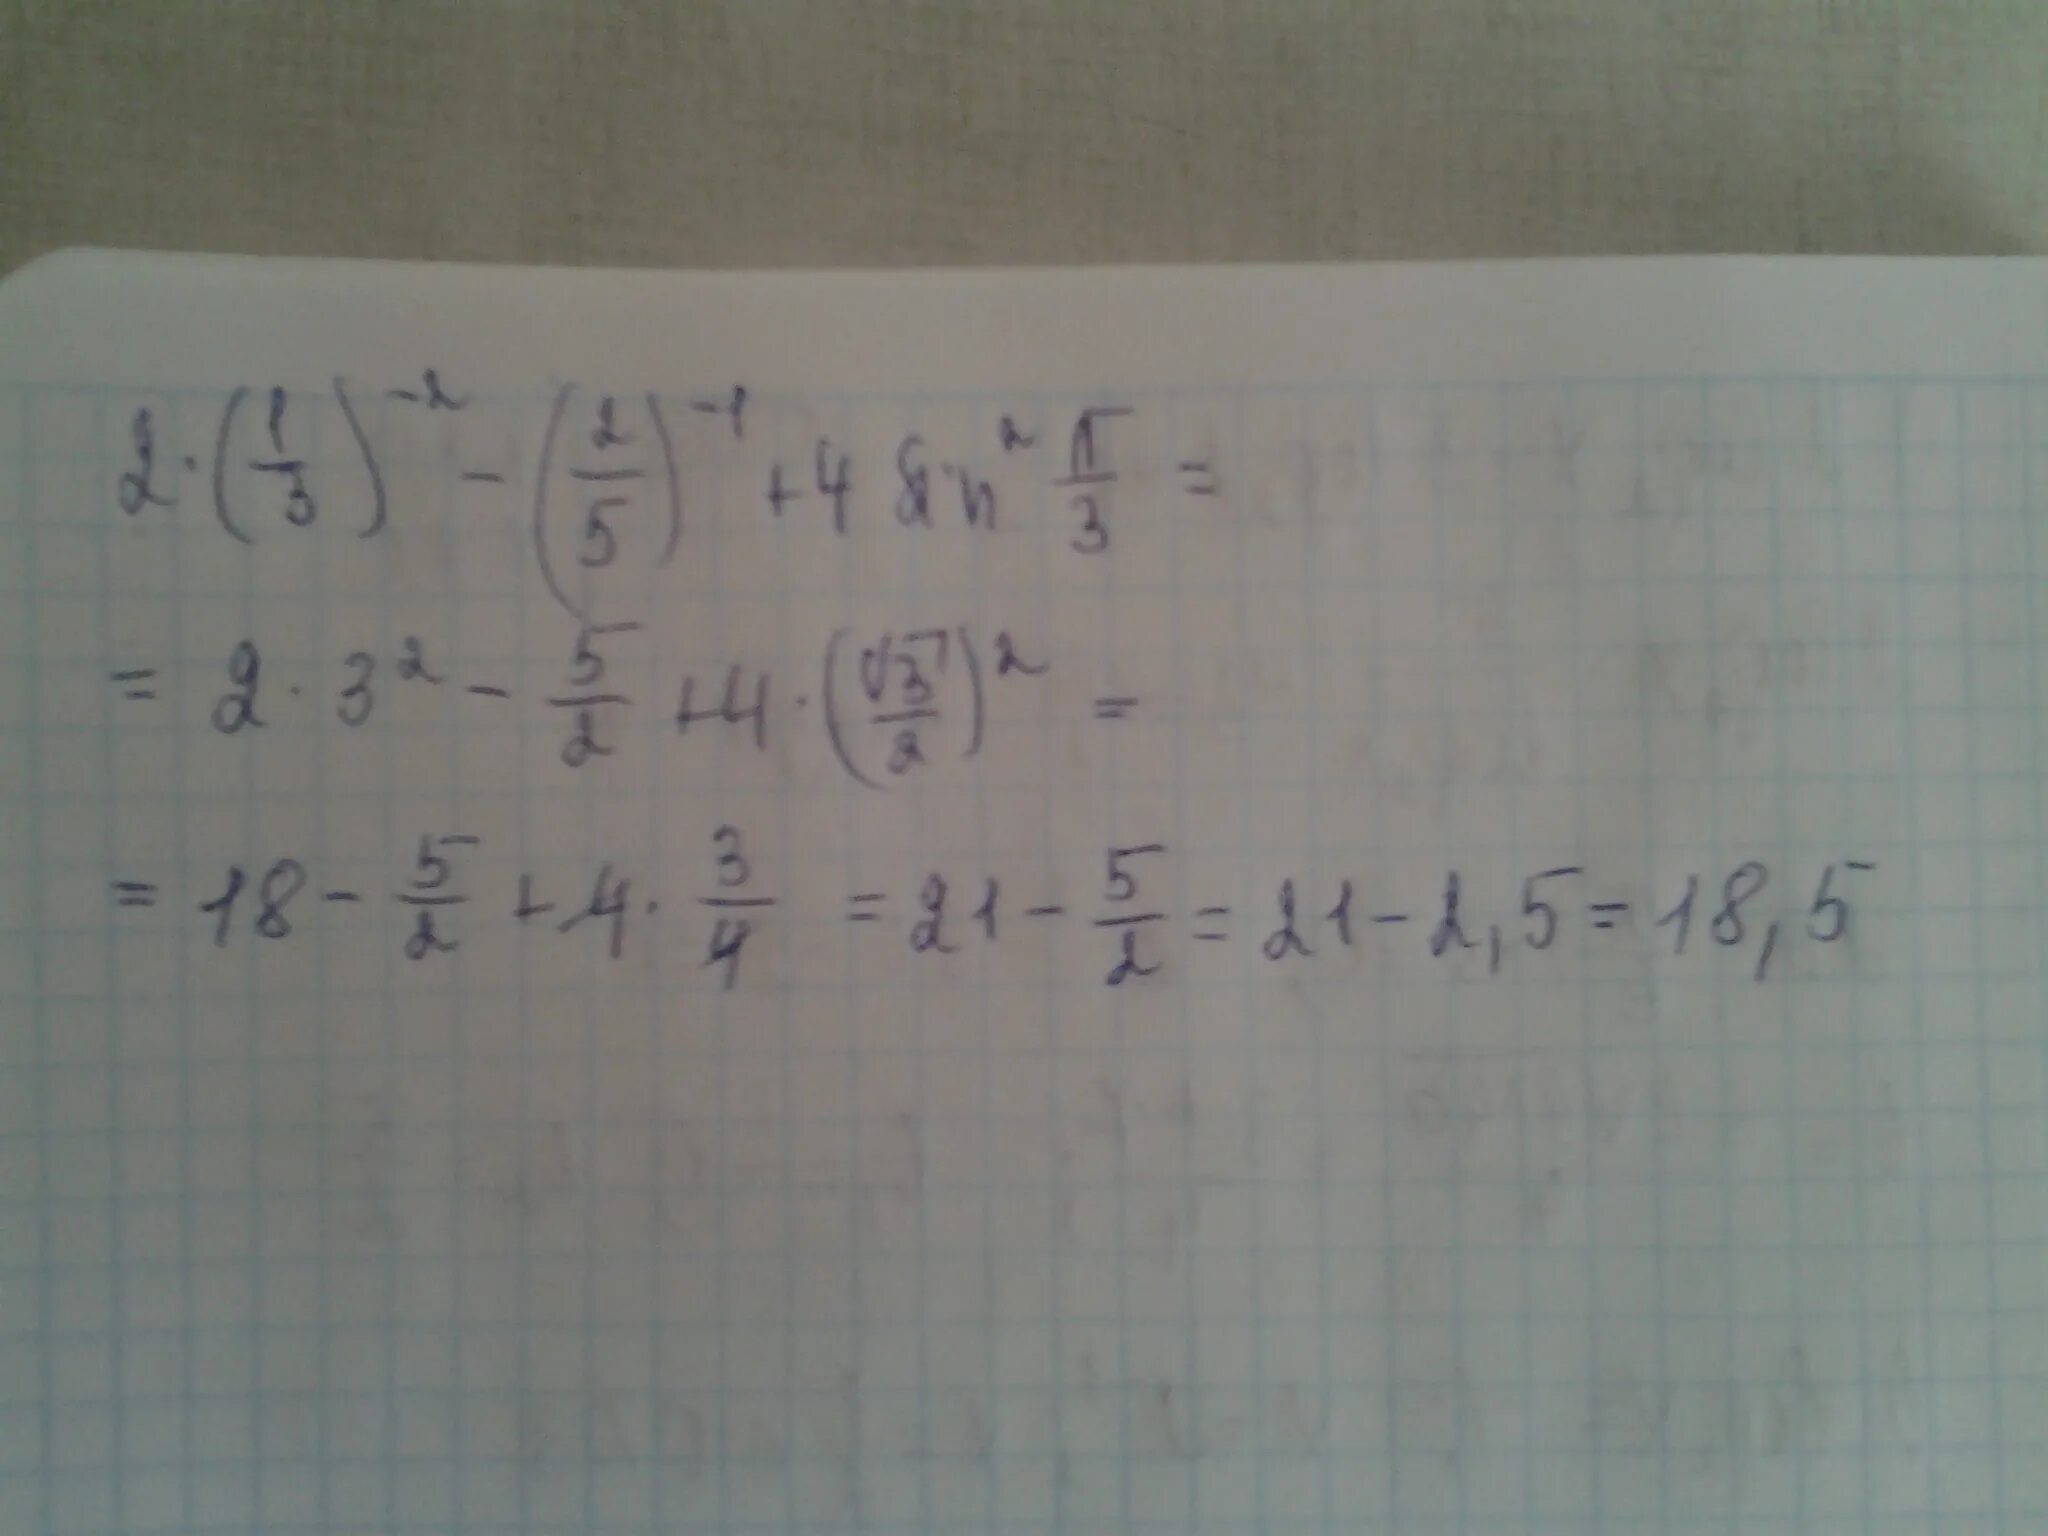 2 · (1/3)^-2 - (2/5)^-1 + 4 sin^2 π/3 =
= 2 · 3^2 - 5/2 + 4 · (√3/2)^2 =
= 18 - 5/2 + 4 · 3/4 = 21 - 5/2 = 21 - 2,5 = 18,5